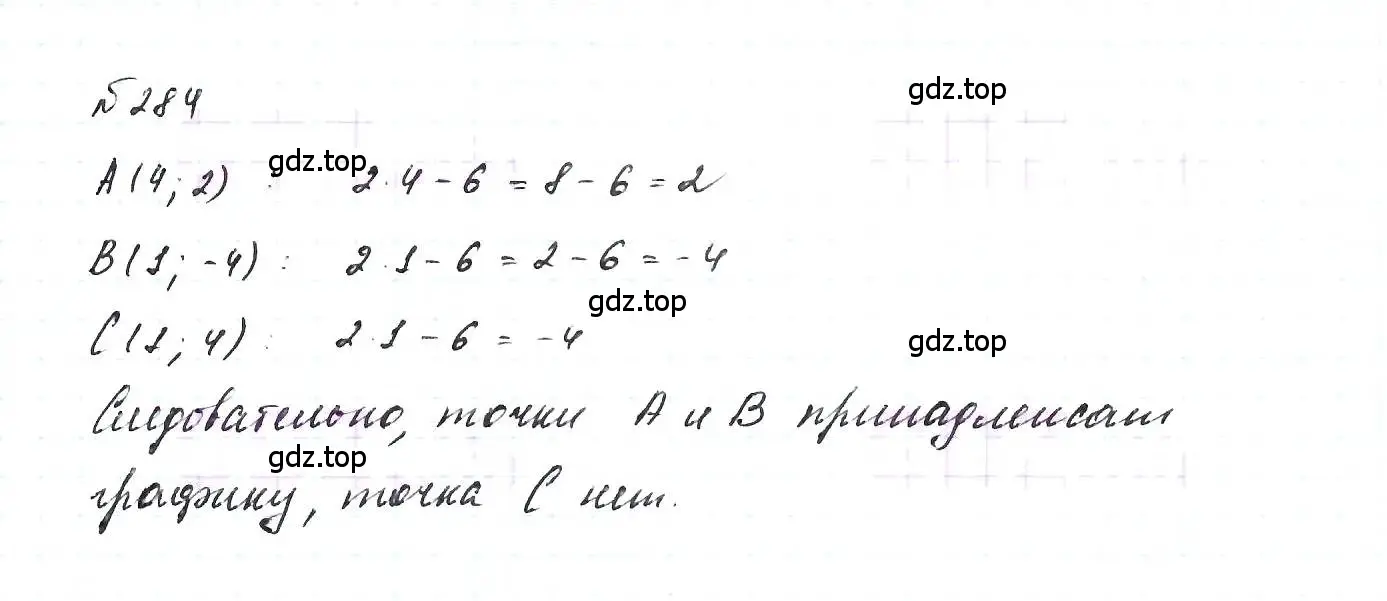 № 284
gdz.top
A(4; 2) : 2·4 - 6 = 8 - 6 = 2
gdz.top
B(1; -4) : 2·1 - 6 = 2 - 6 = -4
gdz.top
C(1; 4) : 2·1 - 6 = -4
gdz.top
Следовательно, точки A и B принадлежат
gdz.top
графику, точка C нет.